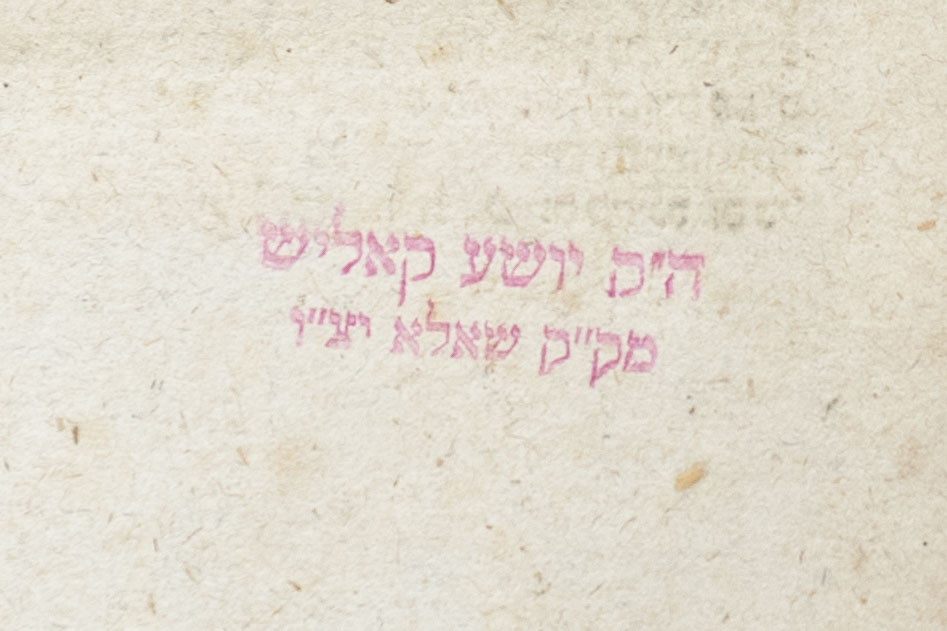 ה"ק יושע קאליש
מק"ק שאלא יצ"ו